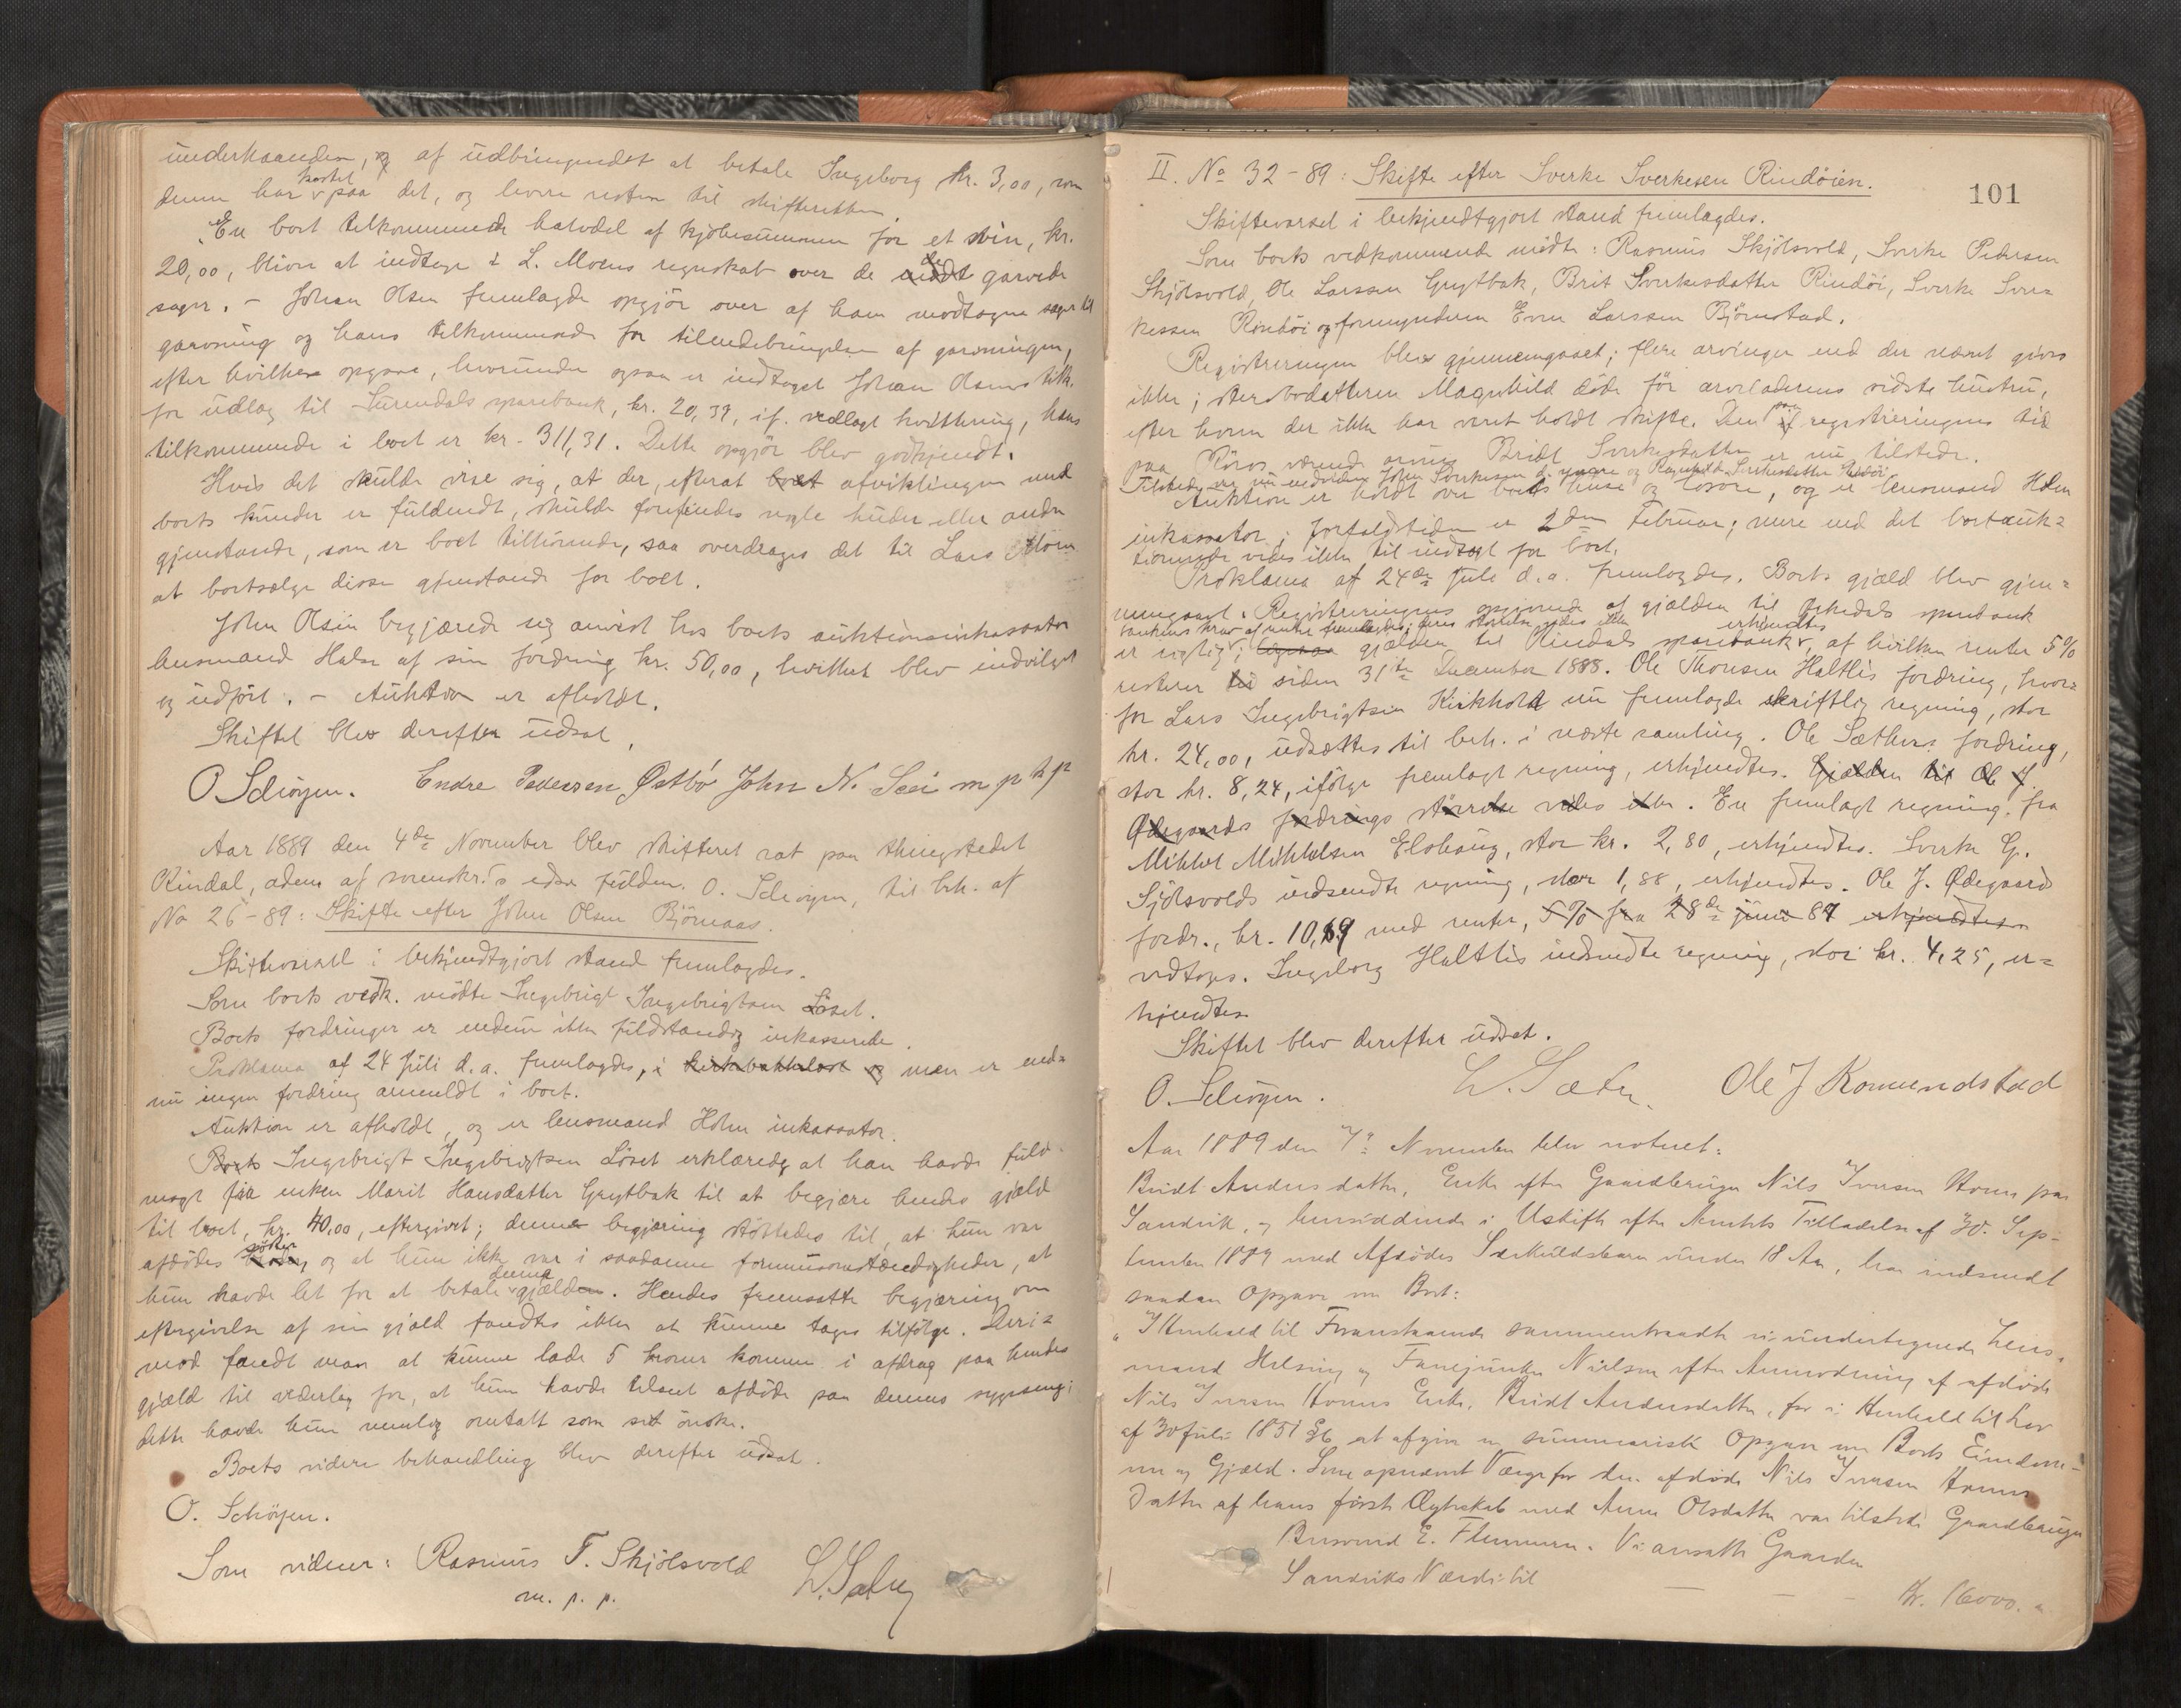 underhaanden, og af udbringendet at betale Ingeborg kr. 3,00, som
denne har kostet paa det, og levere resten til skifteretten.
En boet tilkommende halvdel af kjöbesummen for et svin, kr.
20,00, bliver at indtage i L. Moens regnskab over de garvede
sager. – Johan Olsen fremlagde opgjör over af ham modtagne sager til
garvning og hans tilkommende for tilendebringelsen af garvningen,
efter hvilken opgave, hvorunder ogsaa er indtaget Johan Olsens tilk.
for udlæg til Surendals sparebank, kr. 20,39, if. vedlagt kvittering, hans
tilkommende i boet er kr. 311,31. Dette opgjör blev godkjendt.
Hvis det skulde vise sig, at der, efterat boet afviklingen med
boets kunder er fuldendt, skulde forefindes nogle huder eller andre
gjenstande, som er boet tilhörende, saa overdrages det til Lars Moen
at bortsælge disse gjenstande for boet.
John Olsen begjærede sig anvist hos boets auktionsinkassator
lensmand Holm af sin fordring kr. 50,00, hvilket blev indvilget
og udfört. – Auktion er afholdt.
Skiftet blev derefter udsat.
O. Schöyen. Endre Pedersen Østbö John N. Sæi m p h p
Aar 1889 den 4de November blev skifteret sat paa thingstedet
Rindal, adm. af sorenskr.s edsv. fuldm. O. Schöyen, til beh. af
No 26-89: Skifte efter John Olsen Björnaas.
Skiftevarsel i bekjendtgjort stand fremlagdes.
Som boets vedk. mödte Ingebrigt Ingebrigtsen Löset.
Boets fordringer er endnu ikke fuldstændig inkasserede.
Proklama af 24 Juli d. a. fremlagdes, i og man er end-
nu ingen fordring anmeldt i boet.
Auktion er afholdt, og er lensmand Holm inkassator.
Boets Ingebrigt Ingebrigtsen Löset erklærede, at han havde fuld-
magt fra enken Marit Hansdatter Grytbak til at begjære hendes gjæld
til boet, kr. 40,00, eftergivet; denne begjæring stöttedes til, at hun var
afdödes söster, og at hun ikke var i saadanne formuesomstændigheder, at
hun havde let for at betale denne gjælden. Hendes fremsatte begjæring om
eftergivelse af sin gjæld fandtes ikke at kunne tages tilfölge. Deri-
mod fandt man at kunne lade 5 kroner komme i afdrag paa hendes
gjæld til vederlag for, at hun havde tilseet afdöde paa dennes sygeseng;
dette havde hun nemlig omtalt som sit önske.
Boets videre behandling blev derefter udsat.
O. Schöyen.
Som vidner: Rasmus T. Skjölsvold L. Sæter
m. p. p.
101
II. No 32-89: Skifte efter Sverke Sverkesen Rindöien.
Skiftevarsel i bekjendtgjort stand fremlagdes.
Som boets vedkommende mödte: Rasmus Skjölsvold, Sverke Pedersen
Skjölsvold, Ole Larssen Grytbak, Brit Sverkesdatter Rindöi, Sverke Sver-
kessen Rindöi og formynderen Even Larssen Björnstad.
Registreringen blev gjennemgaaet; flere arvinger end der nævnt gives
ikke; stervbodatteren Magnhild döde för arveladerens sidste hustru,
efter hvem der ikke har været holdt skifte. Den paa registreringens tid
paa Röros værende arving Bridt Sverkesdatter er nu tilstede.
Tilstede er nu endvidere John Sverkesen d. yngre og Ragnhild Sverkesdatter Rindöi
Auktion er holdt over boets huse og lösöre, og er lensmand Holm
inkassator; forfaldstiden er 2den Februar; mere end det bortauk-
tionerede vides ikke til indtægt for boet.
Proklama af 24de Juli d. a. fremlagdes. Boets gjæld blev gjen-
nemgaaet. Registreringens opgivende af gjælden til Orkedals sparebank
bankens krav af renter fremlagdes; dens störrelse vides ikke erkjendtes
er rigtig; gjælden til Rindals sparebank, af hvilken renter 5%
resterer siden 31te December 1888. Ole Thorsen Haltlis fordring, hvor-
for Lars Ingebrigtsen Kirkhold nu fremlagde skriftlig regning, stor
kr. 24,00, udsættes til beh. i næste samling. Ole Sæthers fordring,
stor kr. 8,24, ifölge fremlagt regning, erkjendtes. Gjælden til Ole J.
Ødegaards fordrings störrelse vides ikke. En fremlagt regning fra
Mikkel Mikkelsen Elshaug, stor kr. 2,80, erkjendtes. Sverke G.
Sjölsvolds indsendte regning, stor 1,88, erkjendtes. Ole J. Ødegaards
fordr., kr. 10,69 med renter, 5% fra 28de juni 87 erkjendtes
vedtoges. Ingeborg Haltlis indsendte regning, stor kr. 4,25, er-
kjendtes
Skiftet blev derefter udsat.
O. Schöyen. L. Sæter. Ole J Romundstad
Aar 1889 den 7de November blev noteret:
Bridt Andersdatter, Enke efter Gaardbruger Nils Iversen Honns paa
Sandvik, og hensiddende i Uskifte efter Amtets Tilladelse af 30. Sep-
tember 1889 med Afdödes Særkuldsbarn under 18 Aar, har indsendt
saadan Opgave om Boet:
"I Henhold til Foranstaaende sammentraadte vi undertegnede Lens-
mand Helsing og Fanejunker Nielsen efter Anmodning af afdöde
Nils Iversen Honns Enke, Bridt Andersdatter, for i Henhold til Lov
af 30 Juli 1851 §6 at afgive en summarisk Opgave om Boets Eiendom-
me og Gjæld. Som opnævnt Værge for den afdöde Nils Iversen Honns
Datter af hans förste Ægteskab med Anne Olsdatter var tilstede Gaardbruger
E. Flemmen. Vi ansatte Gaarden
Sandviks Værdi til — — Kr. 16000. "